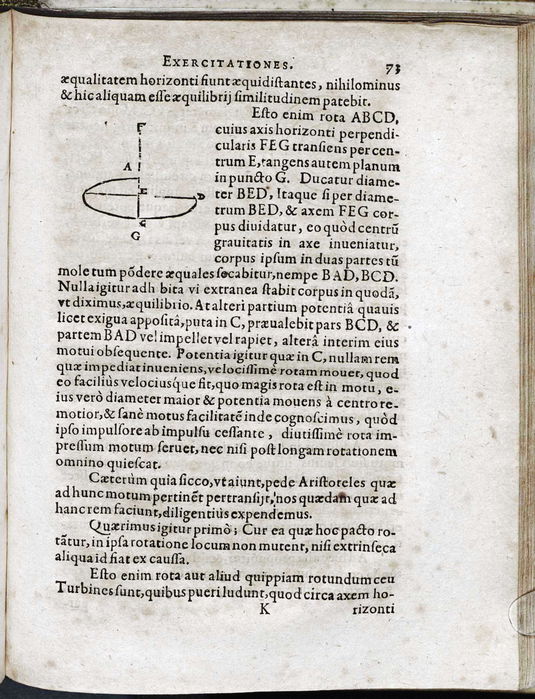 EXERCITATIONES. 73
æqualitatem horizonti fiunt æquidistantes, nihilominus
& hic aliquam esse æquilibrij similitudinem patebit.
Esto enim rota ABCD,
cuius axis horizonti perpendi-
cularis FEG transiens per cen-
trum E, tangens autem planum
in puncto G. Ducatur diame-
ter BED, Itaque si per diame-
trum BED, & axem FEG cor-
pus diuidatur, eo quòd centrũ
grauitatis in axe inueniatur,
corpus ipsum in duas partes tũ
mole tum põdere æquales secabitur, nempe BAD, BCD.
Nulla igitur adhibita vi extranea stabit corpus in quodã,
vt diximus, æquilibrio. At alteri partium potentiâ quauis
licet exigua appositâ, puta in C, præualebit pars BCD, &
partem BAD vel impellet vel rapiet, alterâ interim eius
motui obsequente. Potentia igitur quæ in C, nullam rem
quæ impediat inueniens, velocissimè rotam mouet, quod
eo faciliùs velociusque fit, quo magis rota est in motu, e-
ius verò diameter maior & potentia mouens à centro re-
motior, & sanè motus facilitatẽ inde cognoscimus, quòd
ipso impulsore ab impulsu cessante, diutissimè rota im-
pressum motum seruet, nec nisi post longam rotationem
omnino quiescat.
Cæterùm quia sicco, vt aiunt, pede Aristoteles quæ
ad hunc motum pertinẽt pertransijt, nos quædam quæ ad
hanc rem faciunt, diligentiùs expendemus.
Quærimus igitur primò; Cur ea quæ hoc pacto ro-
tãtur, in ipsa rotatione locum non mutent, nisi extrinseca
aliqua id fiat ex caussa.
Esto enim rota aut aliud quippiam rotundum ceu
Turbines sunt, quibus pueri ludunt, quod circa axem ho-
K rizonti
F
A
E
D
C
G